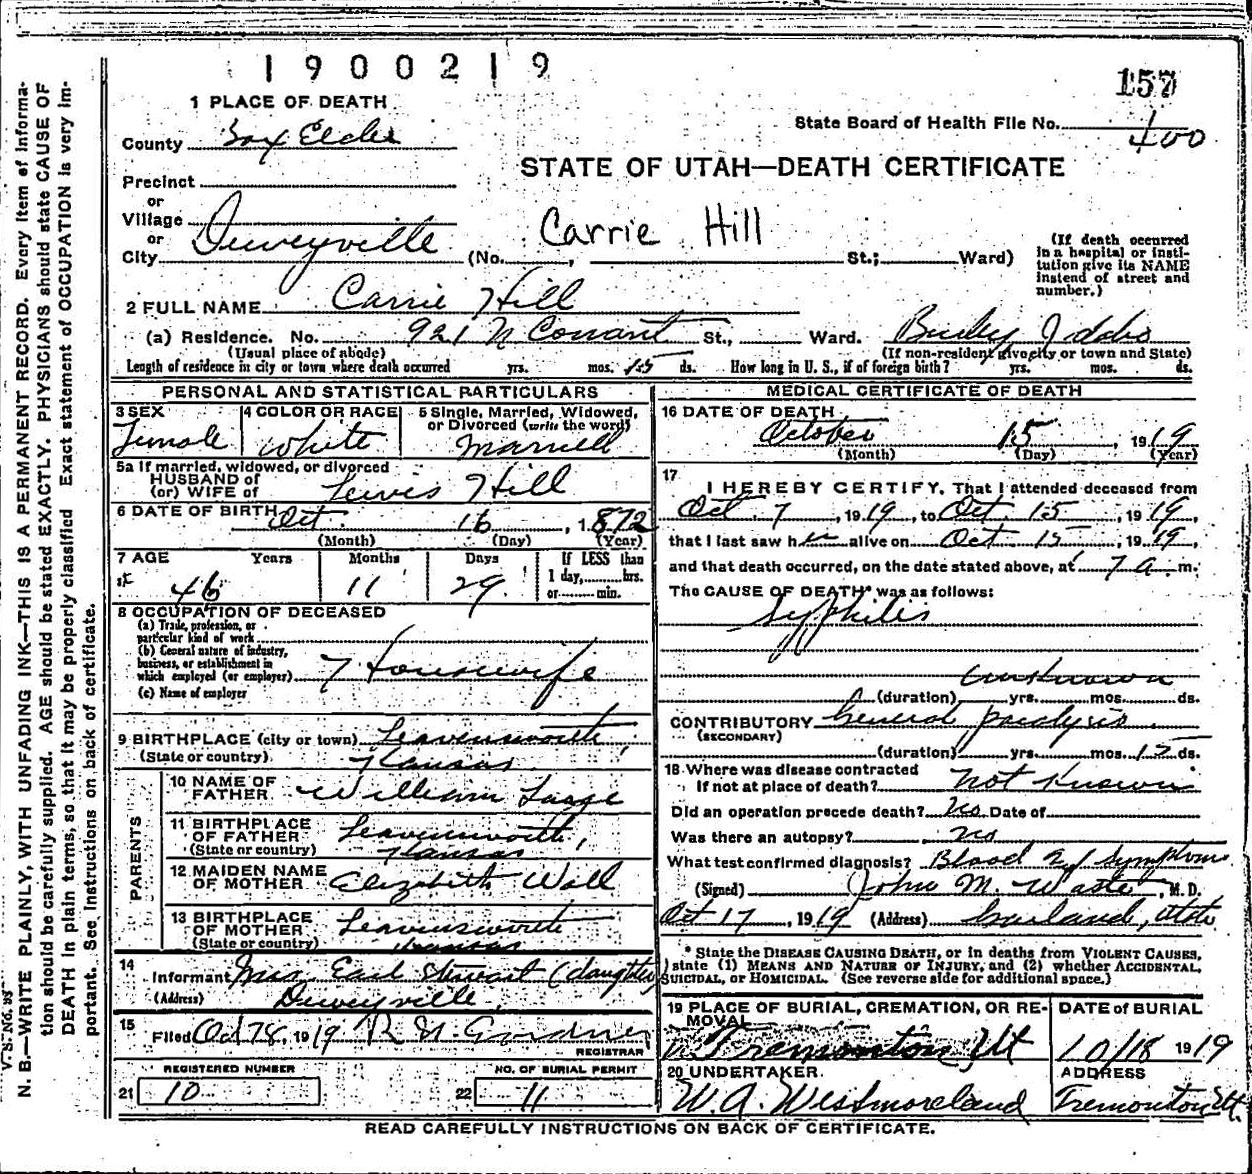 1900219
157
1 PLACE OF DEATH
State Board of Health File No. 400
County Box Elder
STATE OF UTAH—DEATH CERTIFICATE
Precinct
or
Village
or
City Deweyville (No. , St.; Ward)
Carrie Hill
(If death occurred
in a hospital or insti-
tution give its NAME
instead of street and
number.)
2 FULL NAME Carrie Hill
(a) Residence. No. 921 N Conant St., Ward. Burley Idaho
(Usual place of abode) (If non-resident give city or town and State)
Length of residence in city or town where death occurred yrs. mos. 15 ds. How long in U. S., if of foreign birth? yrs. mos. ds.
PERSONAL AND STATISTICAL PARTICULARS
3 SEX Female
4 COLOR OR RACE white
5 Single, Married, Widowed,
or Divorced (write the word)
Married
5a If married, widowed, or divorced
HUSBAND of
(or) WIFE of Lewis Hill
6 DATE OF BIRTH Oct. 16, 1872
(Month) (Day) (Year)
7 AGE Years Months Days If LESS than
1 day, hrs.
or min.
46 11 29
8 OCCUPATION OF DECEASED
(a) Trade, profession, or
particular kind of work
(b) General nature of industry,
business, or establishment in
which employed (or employer) Housewife
(c) Name of employer
9 BIRTHPLACE (city or town) Leavensworth,
(State or country) Kansas
PARENTS
10 NAME OF
FATHER William
11 BIRTHPLACE
OF FATHER Leavensworth,
(State or country) Kansas
12 MAIDEN NAME
OF MOTHER Elizabeth Wall
13 BIRTHPLACE
OF MOTHER Leavensworth
(State or country) Kansas
14
Informant Mrs. Earl Stewart (daughter)
(Address) Deweyville
15
Filed Oct 1919 R N Gardner
REGISTRAR
REGISTERED NUMBER
21 10
NO. OF BURIAL PERMIT
22 11
MEDICAL CERTIFICATE OF DEATH
16 DATE OF DEATH
October 15, 1919
(Month) (Day) (Year)
17
I HEREBY CERTIFY, That I attended deceased from
Oct 7, 1919, to Oct 15, 1919,
that I last saw her alive on Oct 15, 1919,
and that death occurred, on the date stated above, at 7 a. m.
The CAUSE OF DEATH* was as follows:
Syphilis
unknown
(duration) yrs. mos. ds.
CONTRIBUTORY General paralysis
(SECONDARY)
(duration) yrs. mos. 15 ds.
18 Where was disease contracted
If not at place of death? not known
Did an operation precede death? No Date of
Was there an autopsy? no
What test confirmed diagnosis? Blood & Symptoms
(Signed) John M. Waste, M. D.
Oct 17, 1919 (Address) Garland, Utah
* State the DISEASE CAUSING DEATH, or in deaths from VIOLENT CAUSES,
state (1) MEANS AND NATURE OF INJURY, and (2) whether ACCIDENTAL,
SUICIDAL, or HOMICIDAL. (See reverse side for additional space.)
19 PLACE OF BURIAL, CREMATION, OR RE-
MOVAL
Tremonton Ut
DATE OF BURIAL
10/18 1919
20 UNDERTAKER
W. A. Westmoreland
ADDRESS
Tremonton Ut.
READ CAREFULLY INSTRUCTIONS ON BACK OF CERTIFICATE.
N. B.—WRITE PLAINLY, WITH UNFADING INK—THIS IS A PERMANENT RECORD. Every item of informa-
tion should be carefully supplied. AGE should be stated EXACTLY. PHYSICIANS should state CAUSE OF
DEATH in plain terms, so that it may be properly classified. Exact statement of OCCUPATION is very im-
portant. See Instructions on back of certificate.